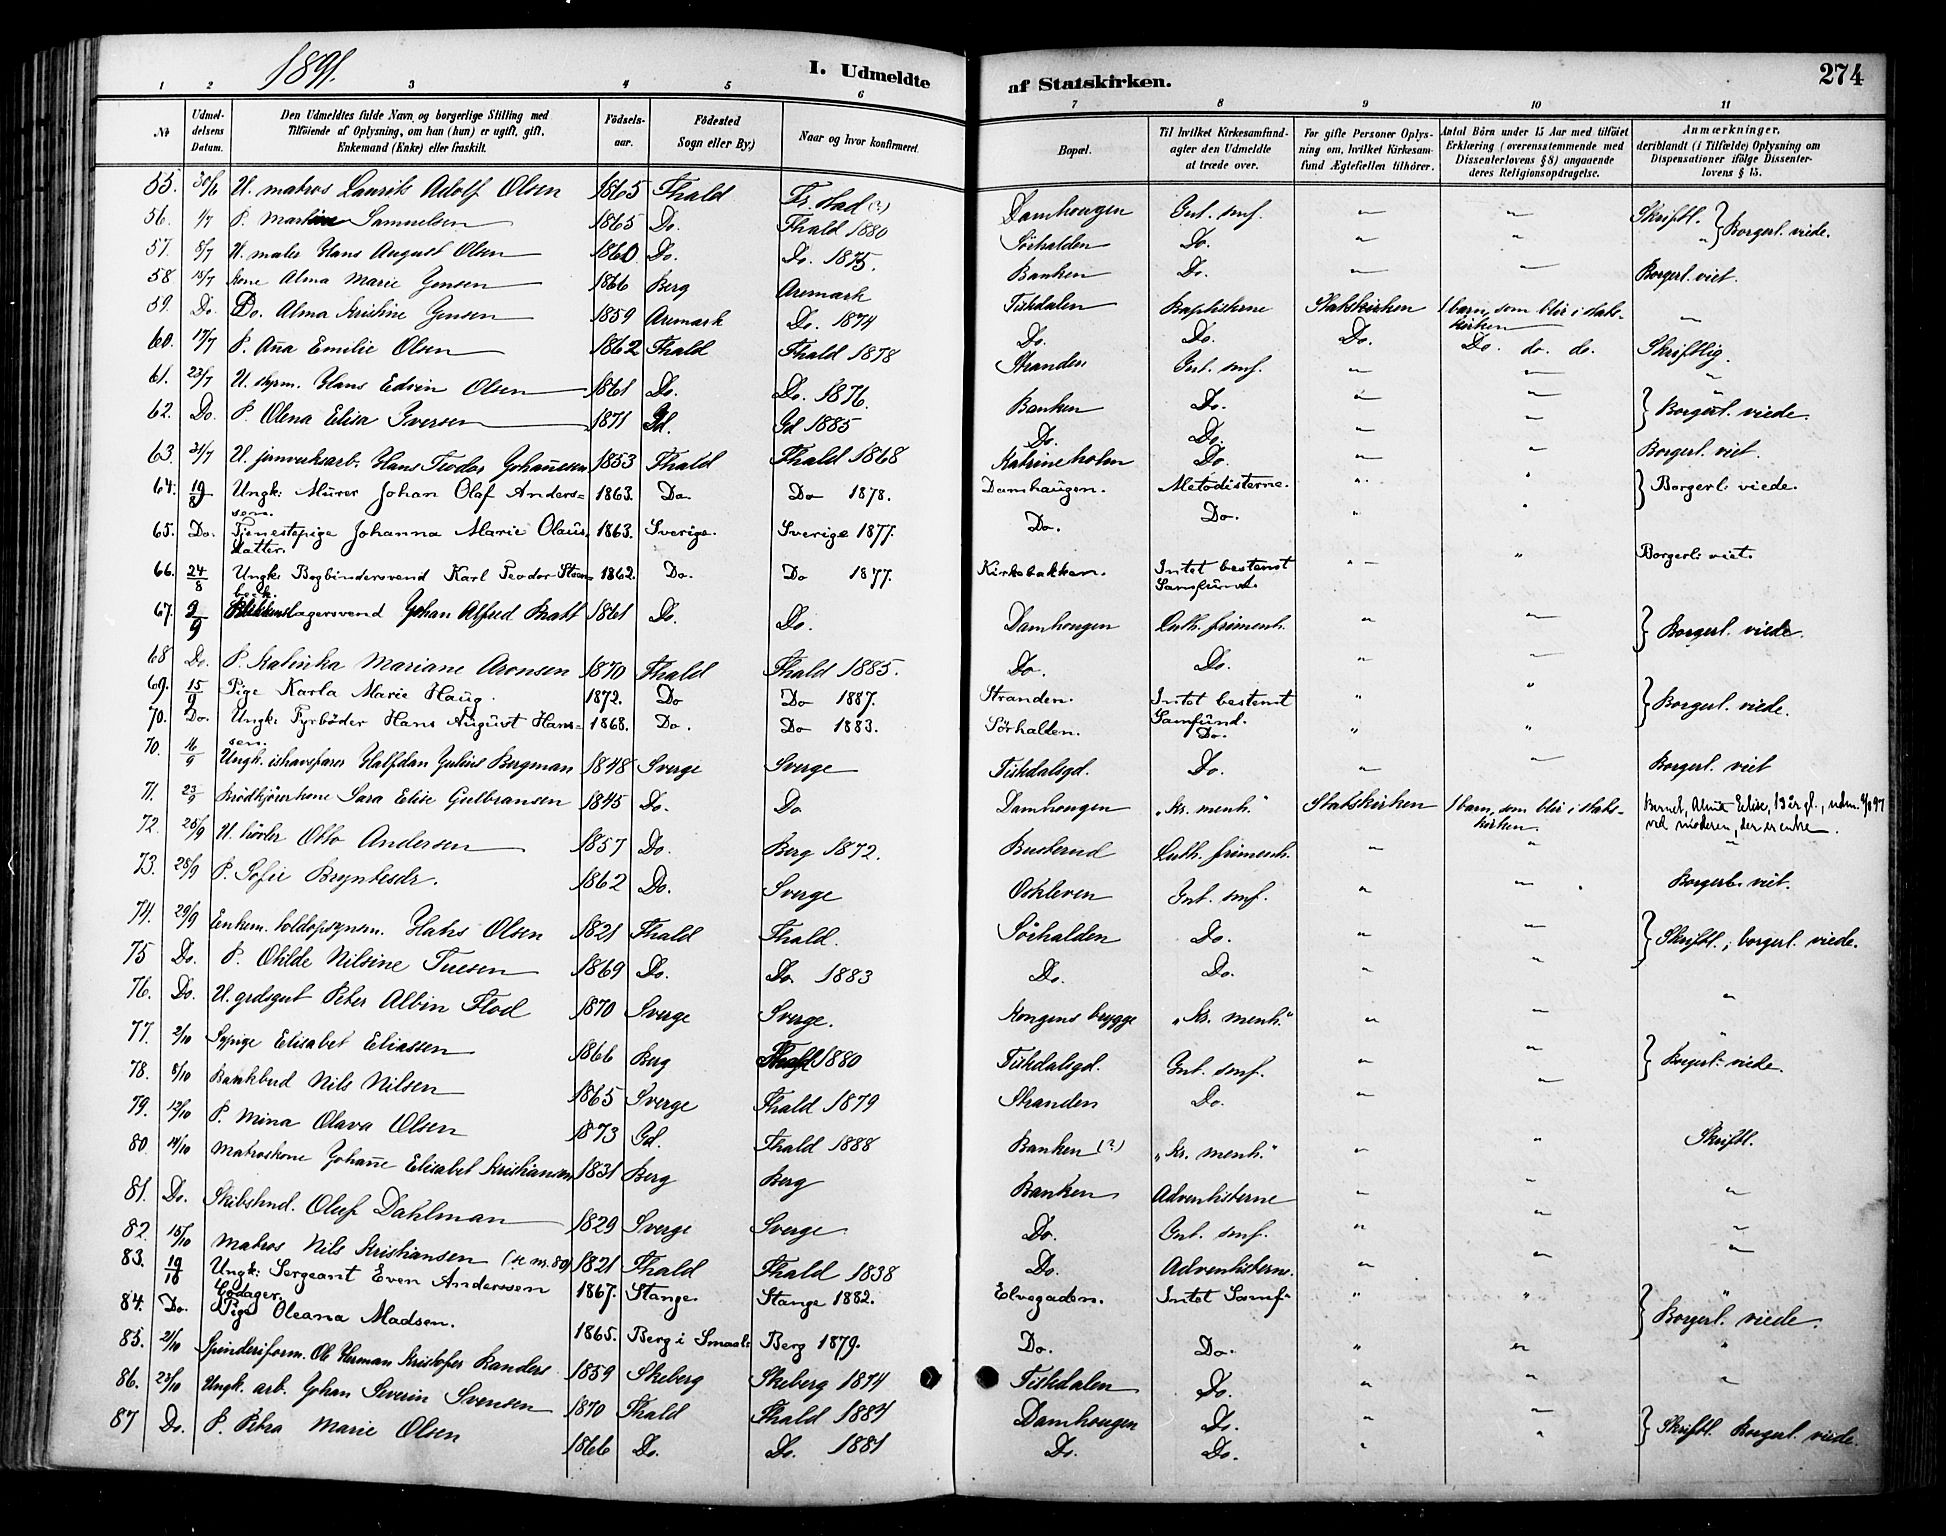 1891.
I. Udmeldte
af Statskirken.
274
1 2 3 4 5 6 7 8 9 10 11
Nr
Udmel-
delsens
Datum.
Den Udmeldtes fulde Navn og borgerlige Stilling med
Tilføiende af Oplysning, om han (hun) er ugift, gift,
Enkemand (Enke) eller fraskilt.
Fødsels-
aar.
Fødested
Sogn eller By.)
Naar og hvor konfirmeret.
Bopæl.
Til hvilket Kirkesamfund-
agter den Udmeldte
at træde over.
For gifte Personer Oplys-
ning om, hvilket Kirkesam-
fund Ægtefællen tilhører.
Antal Börn under 15 Aar med tilföiet
Erklæring (overensstemmende med
Dissenterlovens § 8) angaaende
deres Religionsopdragelse.
Anmærkninger,
deriblandt (i Tilfælde) Oplysning om
Dispensationer ifölge Dissenter-
lovens § 15.
55. 30/6 U. matros Laurits Adolf Olsen 1865 Fhald Fr.stad (?) Damhougen Int. smf. " " Skriftl. } Borgerl. viede.
56. 1/7 P. Martine Samuelsen 1865 Do. Fhald 1880 Sörhalden Do. " " "
57. 8/7 U. maler Hans August Olsen 1860 Do. Do. 1875. Banken Do. " " Borgerl. viet.
58 15/7 Kone Alma Marie Jensen 1866 Berg Aremark Tistdalen Baptisterne Statskirken 1 barn, som blir i stats-
kirken "
59. Do. Do. Alma Kristine Jensen 1859 Aremark Do. 1874 Do. Do. Do. Do. do. do.
60. 17/7 P. Ana Emilie Olsen 1862 Fhald Fhald 1878 Stranden Int. smf. " " Skriftlig.
61. 23/7 U. styrm. Hans Edvin Olsen 1861 Do. Do. 1876. Banken Do. " " } Borgerl. viede.
62. Do. P. Olena Elisa Iversen 1871 Id. Id 1885 Do. Do. " "
63. 31/7 U. jernverksarb. Hans Teodor Johanesen 1853 Fhald Fhald 1868 Katrineholm Do. " " Borgerl. viet.
64. Ungk: Mürer Johan Olaf Anders=
sen. 1863. Do. Do 1878. Damhaugen. Metodisterne. " " } Borgerl: viede.
65. Do. Tjenestepige Johanna Marie Olaüs-
datter. 1863. Sverige. Sverige 1877. Do. Do. " "
66. 24/8 Ungk: Bogbindersvend Karl Teodor Steen-
beck. 1862. Do. Do 1877. Kirkebakken. Intet bestemt
Samfund. " " Borgerl: viet.
67. 2/9 Blikkenslagersvend Johan Alfred Bratt 1861 Do. Do. Damhougen Luth. frimenh. " " } Borgerl. viede.
68 Do. P. Kalinka Mariane Aronsen 1870 Fhald Fhald 1885. Do. Do. " "
69. 15/9 Pige Karla Marie Haug. 1872. Do Do 1887. Stranden. Intet bestemt
Samfund. " " } Borgerl. viede.
70. Do. Ungk: Fyrbøder Hans Augüst Hans=
sen. 1868. Do. Do 1883. Sörhalden. Do. " "
70. 16/9 Ungk. ishavsfarer Halfdan Julius Bergman 1848 Sverge Sverge Tistdalsgd. Do. " " Borgerl. viet
71. 23/9 Brödkjörerkone Sara Elise Gulbransen 1845 Do. Do Damhougen "Kr. menh." Statskirken 1 barn, som blir i stats-
kirken. Barnet, Elise, 13 år gl., udm.
ved moderen, der er enke.
72. 26/9 U. Otto Andersen 1857 Do. Berg 1872. Busterud Luth. frimenh. " " "
73. 28/9 P. Sofie Bryntesdr. 1862 Do. Sverge Oskleven Int. smf. " " Borgerl. viet.
74. 29/9 Enkem. toldopsynsm. Hans Olsen 1821 Fhald Fhald. Sörhalden Do. " " } Skriftl.; borgerl. viede.
75 Do. P. Otilde Nilsine Tuesen 1869 Do. Do. 1883 Do. Do. " "
76. Do. U. grdsgut Peter Albin Flod 1870 Sverge Sverge. Kongens brygge "Kr. menh." " " "
77. 2/10 Sypige Elisabet Eliassen 1866 Berg Fhald 1880 Tistdalsgd. Int. smf. " " } Borgerl. viede.
78. 8/10 Bankbud Nils Nilsen 1865 Sverge Fhald 1879 Stranden Do. " "
79. 12/10 P. Mina Olava Olsen 1873 Id. Fhald 1888 Banken (?) "Kr. menh." " " Skriftl.
80. 14/10 Matroskone Johane Elisabet Kristiansen 1831 Berg Berg Banken Adventisterne " " "
81. Do. Skibstmd. Oluf Dahlman 1829 Sverge Sverge Do. Int. smf. " " "
82. 15/10 Matros Nils Kristiansen (se nr. 80) 1821 Fhald Fhald 1838 Do. Adventisterne. " " "
83. 19/10 Ungk: Sergeant Even Anderssen
Godager. 1867. Stange. Stange 1882. Elvegaden. Intet Samf. " " } Borgerl. viede.
84. Do. Pige Oleana Madsen. 1865. Berg i Smaal: Berg 1879. Do. Do. " "
85. 21/10 Spinderiform. Ole Herman Kristofer Randers 1859 Skeberg Skeberg 1874 Tistdalen Do. " " "
86. 23/10 Ungk. arb. Johan Severin Svensen 1870 Fhald Fhald 1884 Damhougen Do. " " } Skriftl. Borgerl. viede.
87 Do. P. Petra Marie Olsen 1866 Do. Do. 1881 Do. Do. " "